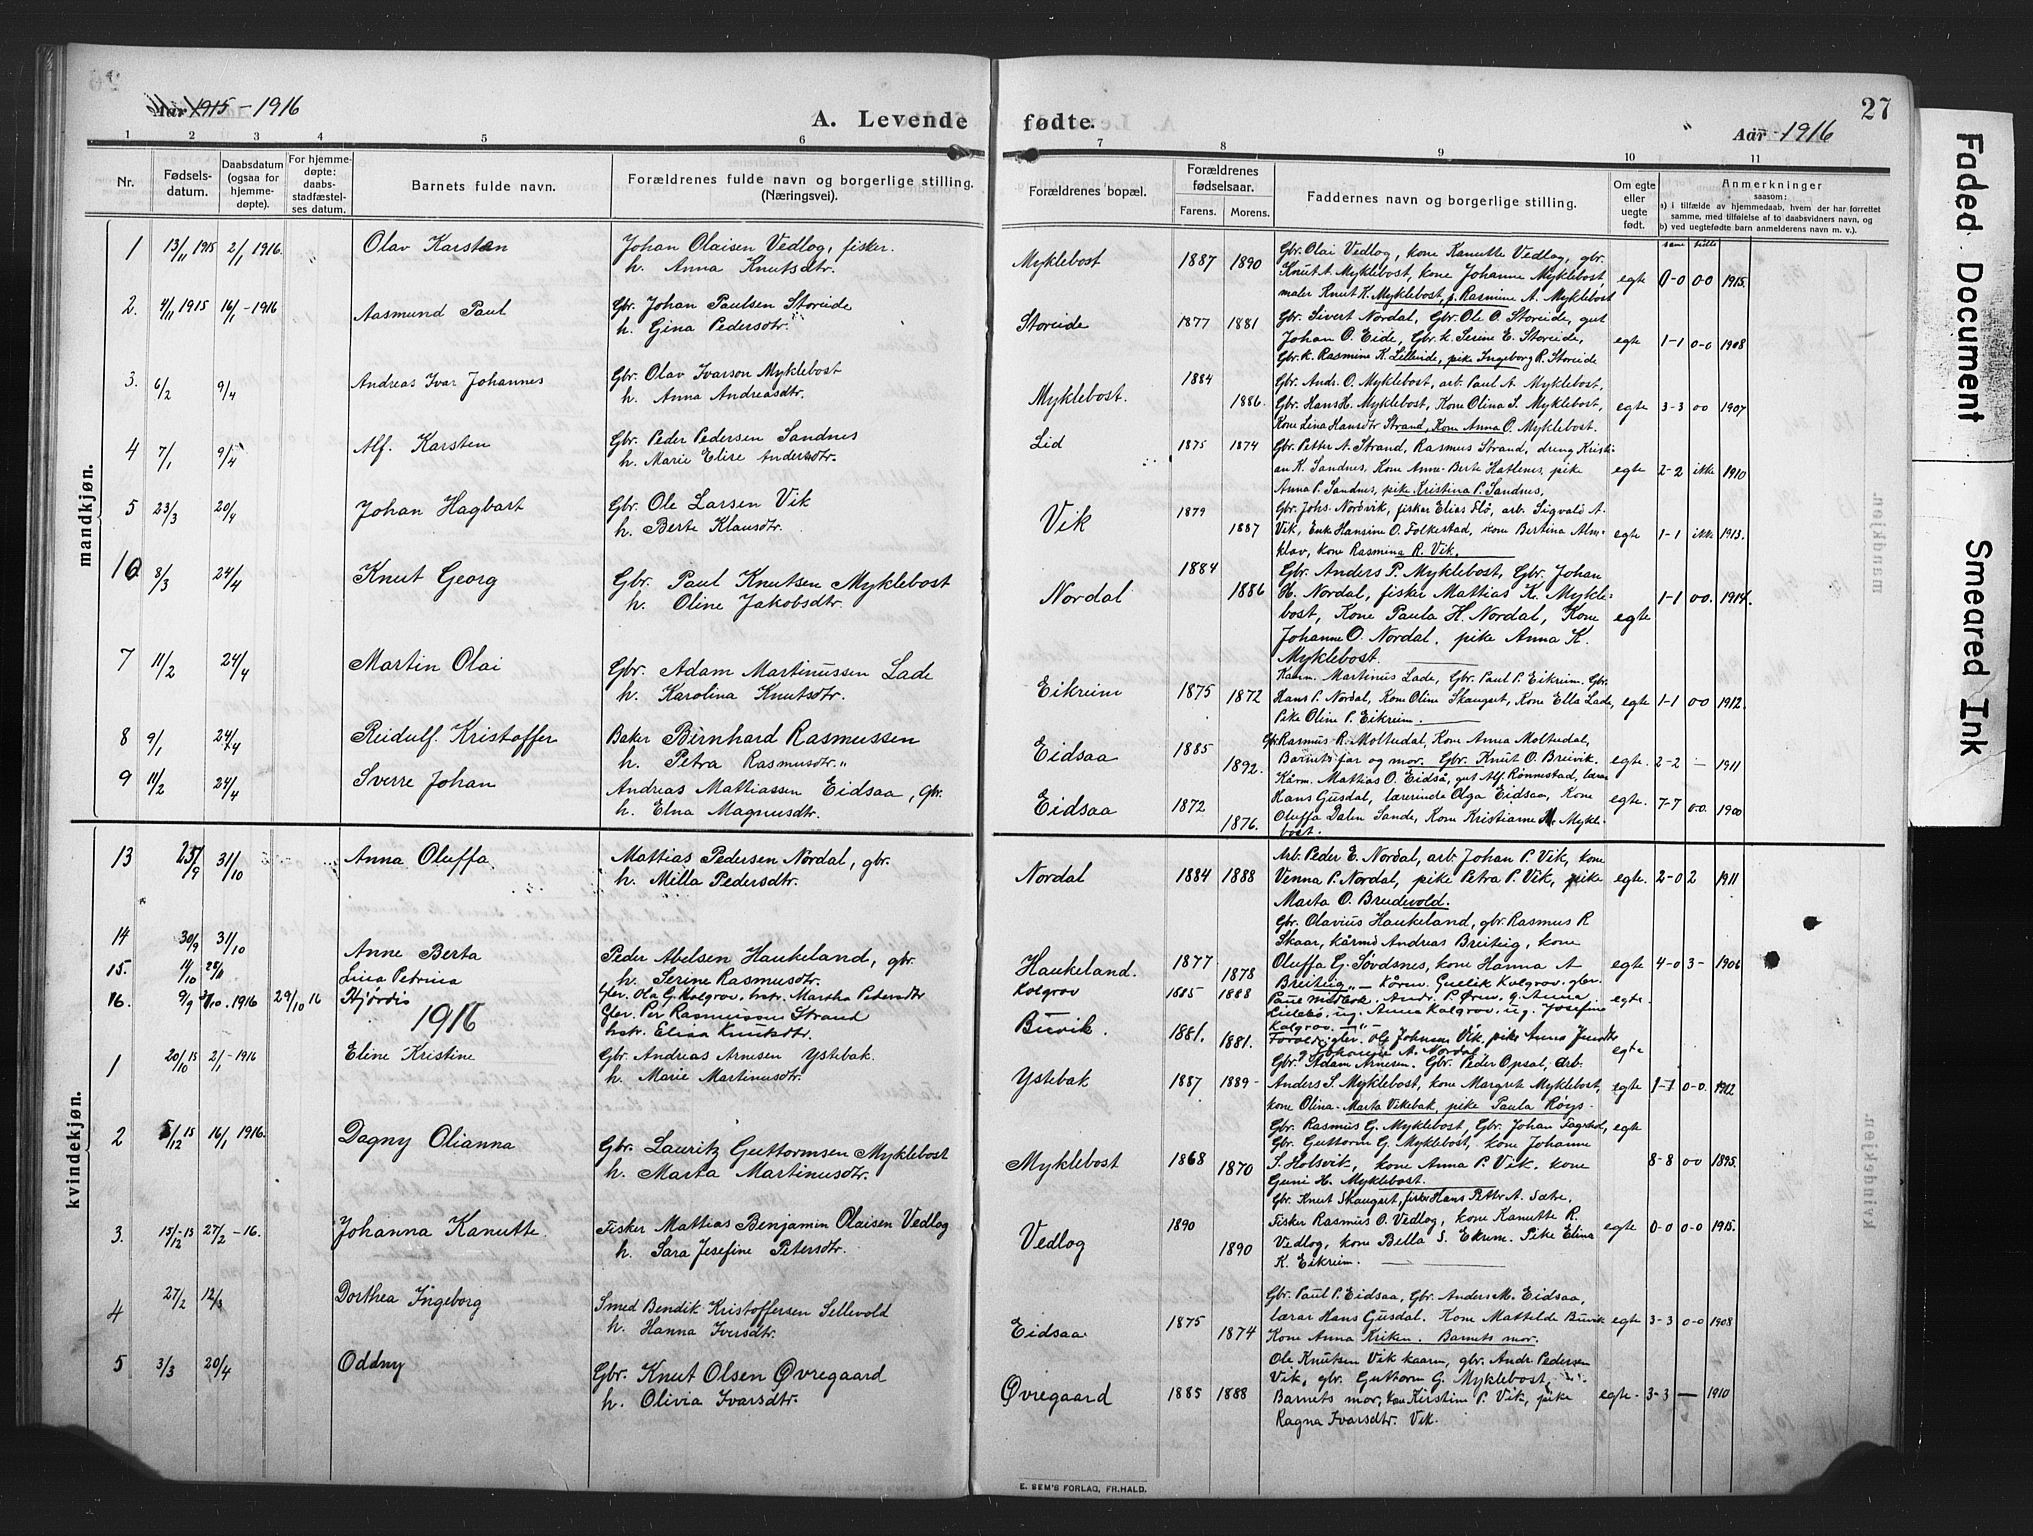 Aar 1915 - 1916
A. Levende fødte.
27
Aar 1916
1 2 3 4 5 6 7 8 9 10 11
Nr.
Fødsels-
datum.
Daabsdatum
(ogsaa for
hjemme-
døpte).
For hjemme-
døpte:
daabs-
stadfæstel-
ses datum.
Barnets fulde navn.
Forældrenes fulde navn og borgerlige stilling.
(Næringsvei).
Forældrenes bopæl.
Forældrenes
fødselsaar.
Farens. Morens.
Faddernes navn og borgerlige stilling.
Om egte
eller
uegte
født.
Anmerkninger
saasom:
a) i tilfælde av hjemmedaab, hvem der har forrettet
samme, med tilføielse af to daabsvidners navn, og
b) ved uegtefødte barn anmelderens navn m. v.).
mandkjøn.
1 13/11 1915 2/1 1916. Olav Karsten Johan Olaisen Vedlog, fisker.
h. Anna Knutsdtr.
Myklebost 1887 1890
Gbr. Olai Vedlog, kone Kanutte Vedlog, gbr.
Knut A. Myklebost, kone Johanne Myklebost,
maler Knut K. Myklebost, p. Rasmine A. Myklebost
egte 0-0 0-0 1915.
2. 4/11 1915 16/1 - 1916 Aasmund Paul Gbr. Johan Paulsen Storeide
h. Gina Pedersdtr.
Storeide 1877 1881
Gbr. Sivert Nordal, Gbr. Ole O. Storeide, gut
Johan O. Eide, Gbr. k. Serine E. Storeide,
Gbr. k. Rasmine K. Lilleeide, pike Ingeborg R. Storeide
egte 1-1 0-0 1908
3. 6/2 9/4 Andreas Ivar Johannes Gbr. Olav Ivarson Myklebost
h. Anna Andreasdtr.
Myklebost. 1884 1886.
Gbr. Andr. O. Myklebost, arb. Paul A. Myklebost,
Gbr. Hans H. Myklebost, Kone Olina S. Myklebost,
Kone Lina Hansdtr Strand, Kone Anna O. Myklebost.
egte 3-3 00 1907
4 7/1 9/4 Alf Karsten Gbr. Peder Pedersen Sandnes
h. Marie Elise Andersdtr.
Lid 1875 1874
Gbr. Petter A. Strand, Rasmus Strand, dreng Kristi-
an K. Sandnes, Kone Anne-Berte Hatlenes, pike
Anna P. Sandnes, pike Kristina P. Sandnes,
egte 2-2 ikke 1910
5 23/3 20/4 Johan Hagbart Gbr. Ole Larsen Vik
h. Berte Klausdtr.
Vik 1879 1887
Gbr. Johs. Nordvik, fisker Elias Flø, arb. Sigvald A.
Vik, Enke Hansine O. Folkestad, kone Bertina Alm-
klov, kone Rasmina R. Vik.
egte 1-1 ikke 1913.
8/3 24/4 Knut Georg Gbr. Paul Knutsen Myklebost
h. Oline Jakobsdtr.
Nordal 1884 1886
Gbr. Anders P. Myklebost, Gbr. Johan
H. Nordal, fisker Mattias K. Mykle-
bost, Kone Paula H. Nordal, Kone
Johanne O. Nordal, pike Anna K.
Myklebost.
egte 1-1 00. 1914.
7 11/2 24/4 Martin Olai Gbr. Adam Martinussen Lade
h. Karolina Knutsdtr.
Eikreim 1875 1872
Kaarm. Martinus Lade, Gbr. Paul P. Eikreim, Gbr.
Hans P. Nordal, Kone Oline Skauget, Kone Ella Lade,
Pike Oline P. Eikreim.
egte 1-1 00 1912.
8 9/1 24/4 Reidulf Kristoffer Baker Birnhard Rasmussen
h. Petra Rasmusdtr.
Eidsaa 1885 1892.
Gbr. Rasmus R. Moltudal, Kone Anna Moltudal,
Barnets far og mor. Gbr. Knut O. Breivik.
egte. 2-2 - 1911
9 11/2 24/4 Sverre Johan Andreas Mattiassen Eidsaa, Gbr.
h. Elna Magnusdtr.
Eidsaa 1872 1876.
Kårm. Mattias O. Eidså, gut Alf Rønnestad, lærer
Hans Gusdal, lærerinde Olga Eidsaa, Kone
Oluffa Dalen Sande, Kone Kristiane Mykle-
bost.
egte. 7-7 0-0. 1900
kvindekjøn.
13 31/10 Anna Oluffa Mattias Pedersen Nordal, gbr.
h. Milla Pedersdtr.
Nordal 1884 1888
Arb. Peder E. Nordal, arb. Johan P. Vik, kone
Venna P. Nordal, pike Petra P. Vik, pike
Marta O. Breidevold.
egte. 2-0 2 1911
14 30/9 31/10 Anne Berta Peder Abelsen Haukeland, gbr.
h. Serine Rasmusdtr.
Haukeland. 1877 1878
Gbr. Olavius Haukeland, gbr Rasmus R
Skaar, kårmd Andreas Breiteig, kone
Oluffa G. Søvdsnes, kone Hanna A
Breiteig
egte 4-0 3- 1906
15. 14/10 Lina Petrina Gbr. Ola G. Kolgrov, hstr. Martha Pedersdtr
Kolgrov 1885 1888
Kårm. Gullik Kolgrov, gbr.
egte
16. 9/9 1916 29/10 16 Hjørdis Gbr. Per Rasmussen Strand
hstr. Elisa Knutsdtr.
Buvik. 1881. 1881.
Ole Johnsen Vik, pike Anna
Johanne A. Nordal
egte
1916
1 20/10 15 2/1 - 1916 Eline Kristine Gbr. Andreas Arnesen Ystebak.
h. Marie Martinusdtr.
Ystebak 1887 1889-
Gbr. Adam Arnesen. Gbr. Peder Opsal, Arb.
Anders S. Myklebost, kone Margrete Myklebost,
kone Olina- Marta Vikebak, pike Paula Røys-
egte 1-1 0-0. 1912
2 5/12 15 16/1 1916. Dagny Olianna Gbr. Lauritz Guttormsen Myklebost
h. Marta Martinusdtr.
Myklebost 1868 1870
Gbr. Rasmus G. Myklebost, Gbr. Johan Fagstad,
Gbr. Guttorm G. Myklebost, kone Johanne
S. Holsvik, kone Anna P. Vik, kone
Guni H. Myklebost.
egte 8-8 00 1895.
3. 15/12 15 27/2 - 16. Johanna Kanutte. Fisker Mattias Benjamin Olaisen Vedlog
h. Sara Josefine Petersdtr.
Vedlog 1890 1890
Gbr. Knut Skauget, fisker Hans Petter A. Sæte,
Fisker Rasmus O. Vedlog, kone Kanutte R.
Vedlog, kone Bella S. Ekrem. Pike Elina
K. Eikreim.
egte 0-0 0-0 1915.
4 27/2 12/3 Dorthea Ingeborg Smed Bendik Kristoffersen Sellevold
h. Hanna Iversdtr.
Eidsaa 1875 1874
Gbr. Paul P. Eidsaa, Gbr. Anders M. Eidsaa,
lærar Hans Gusdal. Kone Mattelde Buvik
Kone Anna Kriken. Barnets mor.
egte 3-3 0-0 1908
5 3/3 20/4 Oddny Gbr. Knut Olsen Øvregaard
h. Olivia Ivarsdtr.
Øvregaard 1885 1888
Ole Knutsen Vik kaarm, gbr. Andr. Pedersen
Vik, gbr. Guttorm G. Myklebost,
Barnets mor, kone Kirstine P. Vik, pike
Ragna Ivarsdtr. Vik.
egte- 3-3 - 1910
E. SEM'S FORLAG, FR.HALD.
Faded Document
Smeared Ink